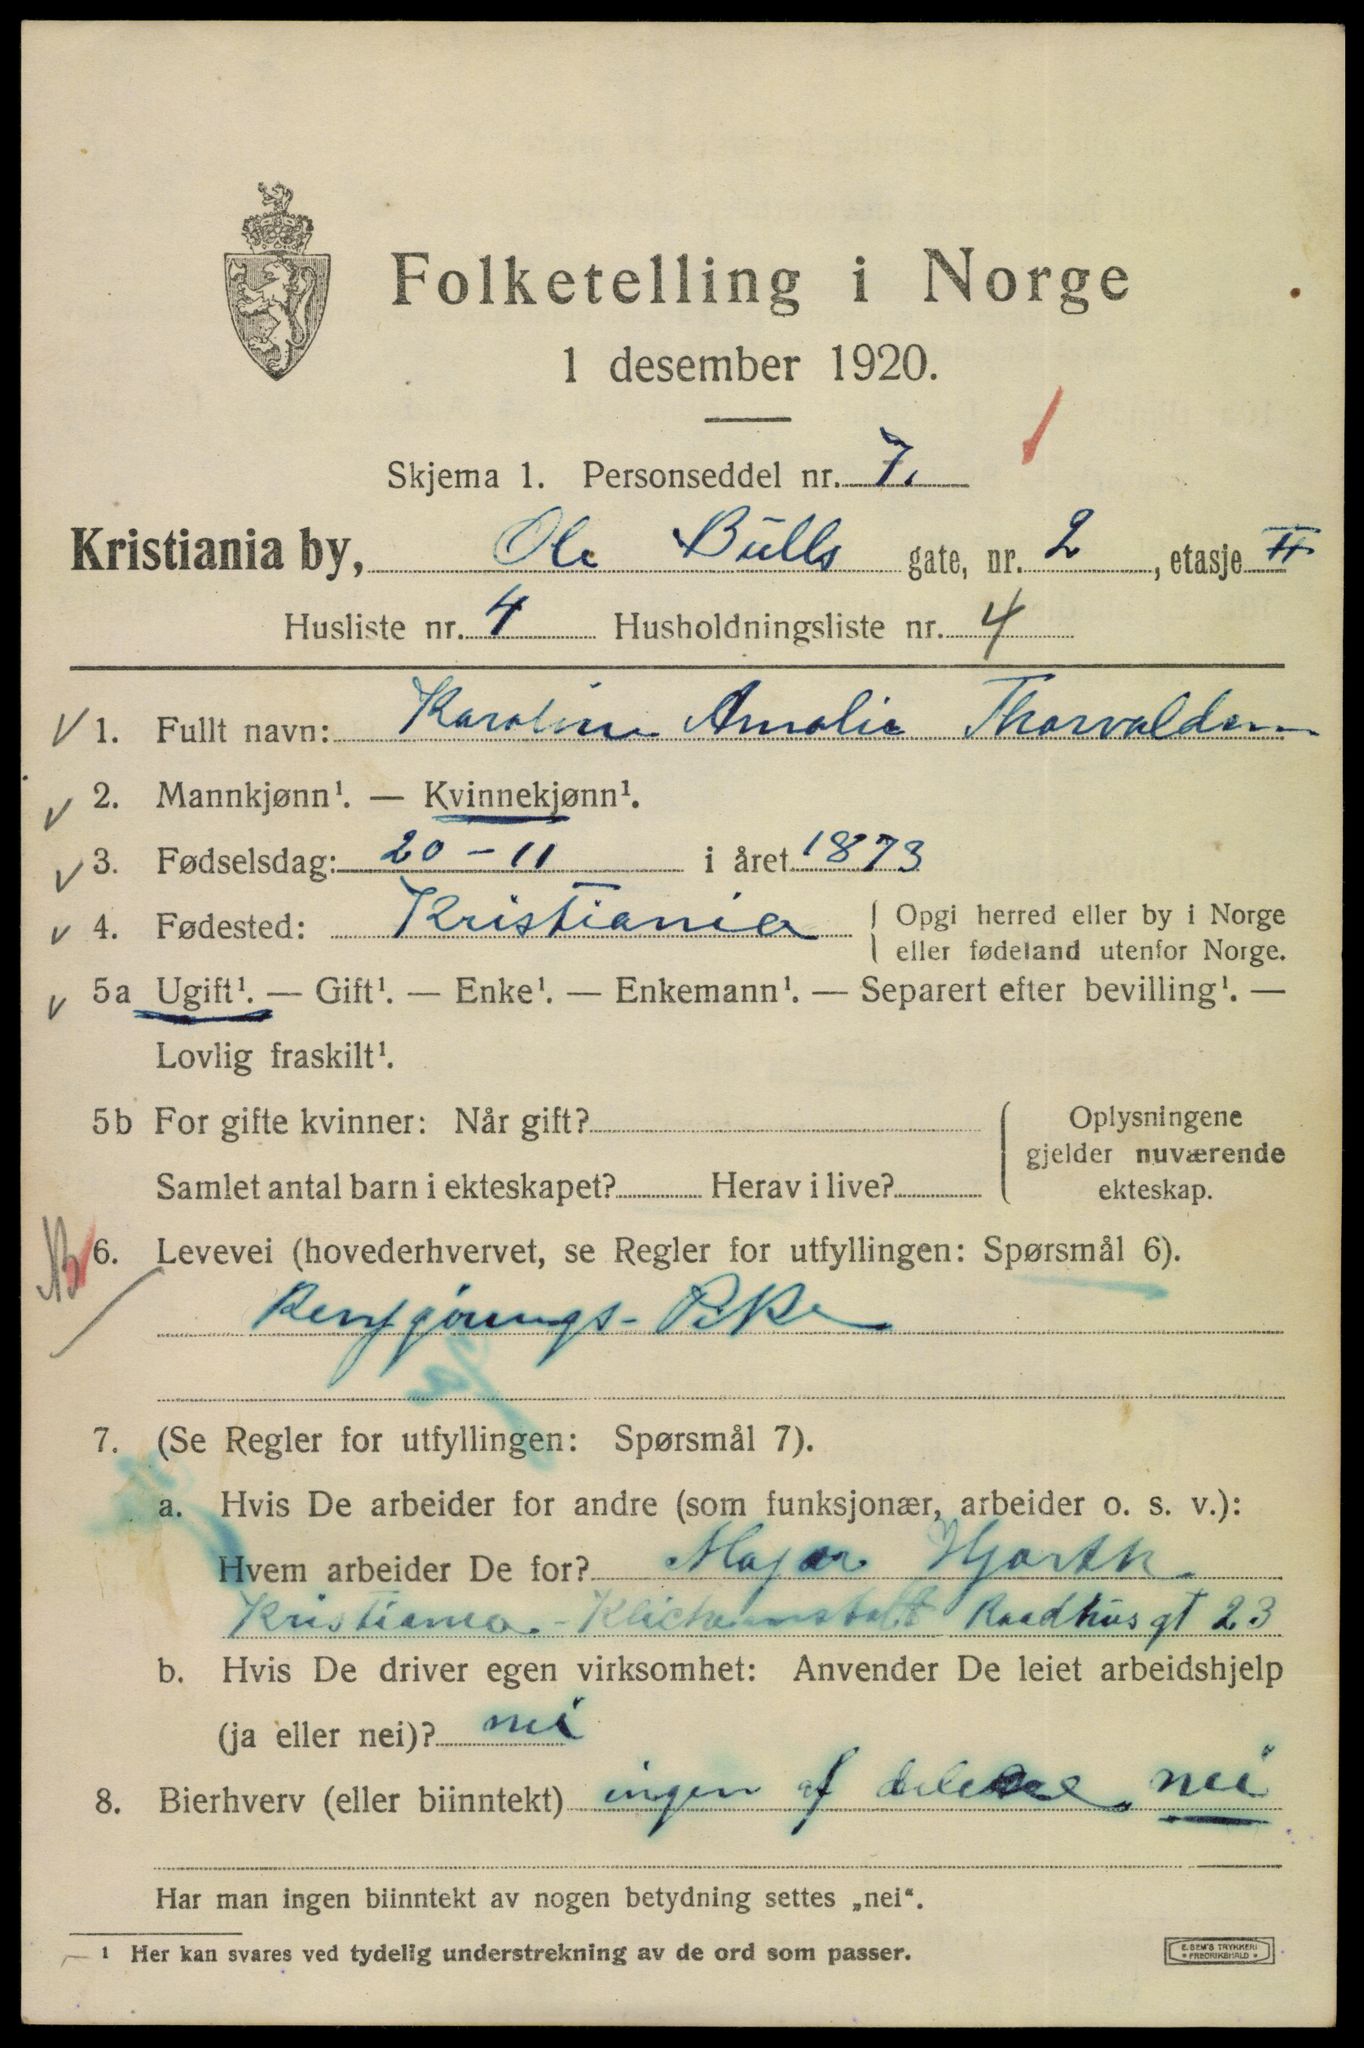 Folketelling i Norge
1 desember 1920.
Skjema 1. Personseddel nr. 7.
Kristiania by, Ole Bulls gate, nr. 2, etasje II
Husliste nr. 4 Husholdningsliste nr. 4
1. Fullt navn: Karoline Amalie Thorvaldsen
2. Mannkjønn¹. — Kvinnekjønn¹.
3. Fødselsdag: 20-11 i året 1873
4. Fødested: Kristiania { Opgi herred eller by i Norge
eller fødeland utenfor Norge.
5a Ugift¹. — Gift¹. — Enke¹. — Enkemann¹. — Separert efter bevilling¹. —
Lovlig fraskilt¹.
5b For gifte kvinner: Når gift?
Samlet antal barn i ekteskapet? Herav i live?
Oplysningene
gjelder nuværende
ekteskap.
6. Levevei (hovederhvervet, se Regler for utfyllingen: Spørsmål 6).
Rengjørings-Pike
7. (Se Regler for utfyllingen: Spørsmål 7).
a. Hvis De arbeider for andre (som funksjonær, arbeider o. s. v.):
Hvem arbeider De for? Major Hjorth
Kristiania - Raadhusgt 23
b. Hvis De driver egen virksomhet: Anvender De leiet arbeidshjelp
(ja eller nei)? nei
8. Bierhverv (eller biinntekt) ingen af nei
Har man ingen biinntekt av nogen betydning settes „nei“.
¹ Her kan svares ved tydelig understrekning av de ord som passer.
E. SEM'S TRYKKERI
FREDRIKSHALD